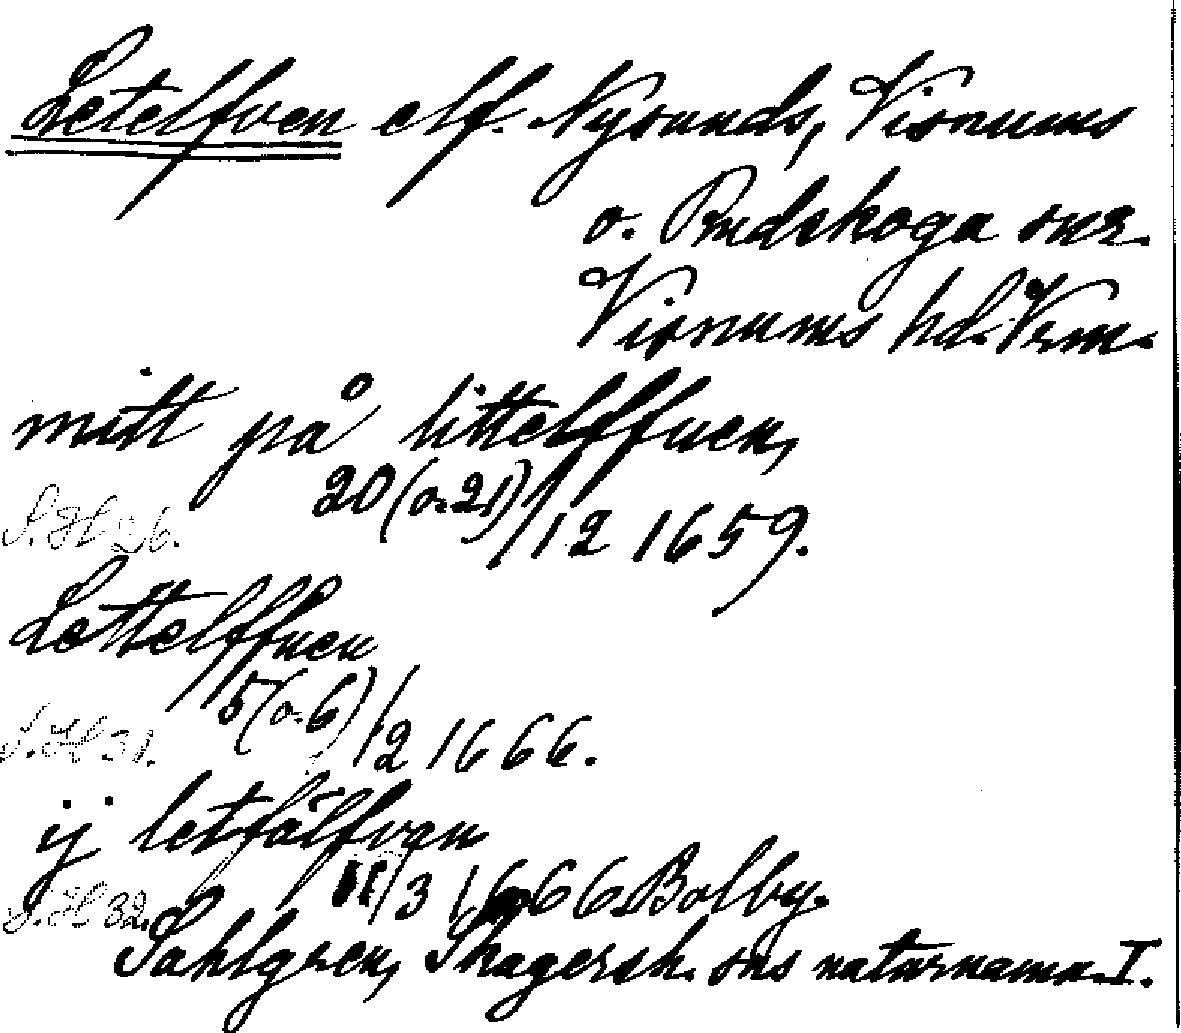 Letelfven elf. Nysunds, Visnums
o. Rudskoga snr.
Visnums hd. Vrm.
mitt på littelffuen,
20 (o. 21)/12 1659.
S. H 26.
Lettelffuen
5 (o. 6)/12 1666.
S. H 31.
ij letfälfvan
11/3 1666 Bolby.
S. H 32.
Sahlgren, Skagersh. sns naturnamn. I.